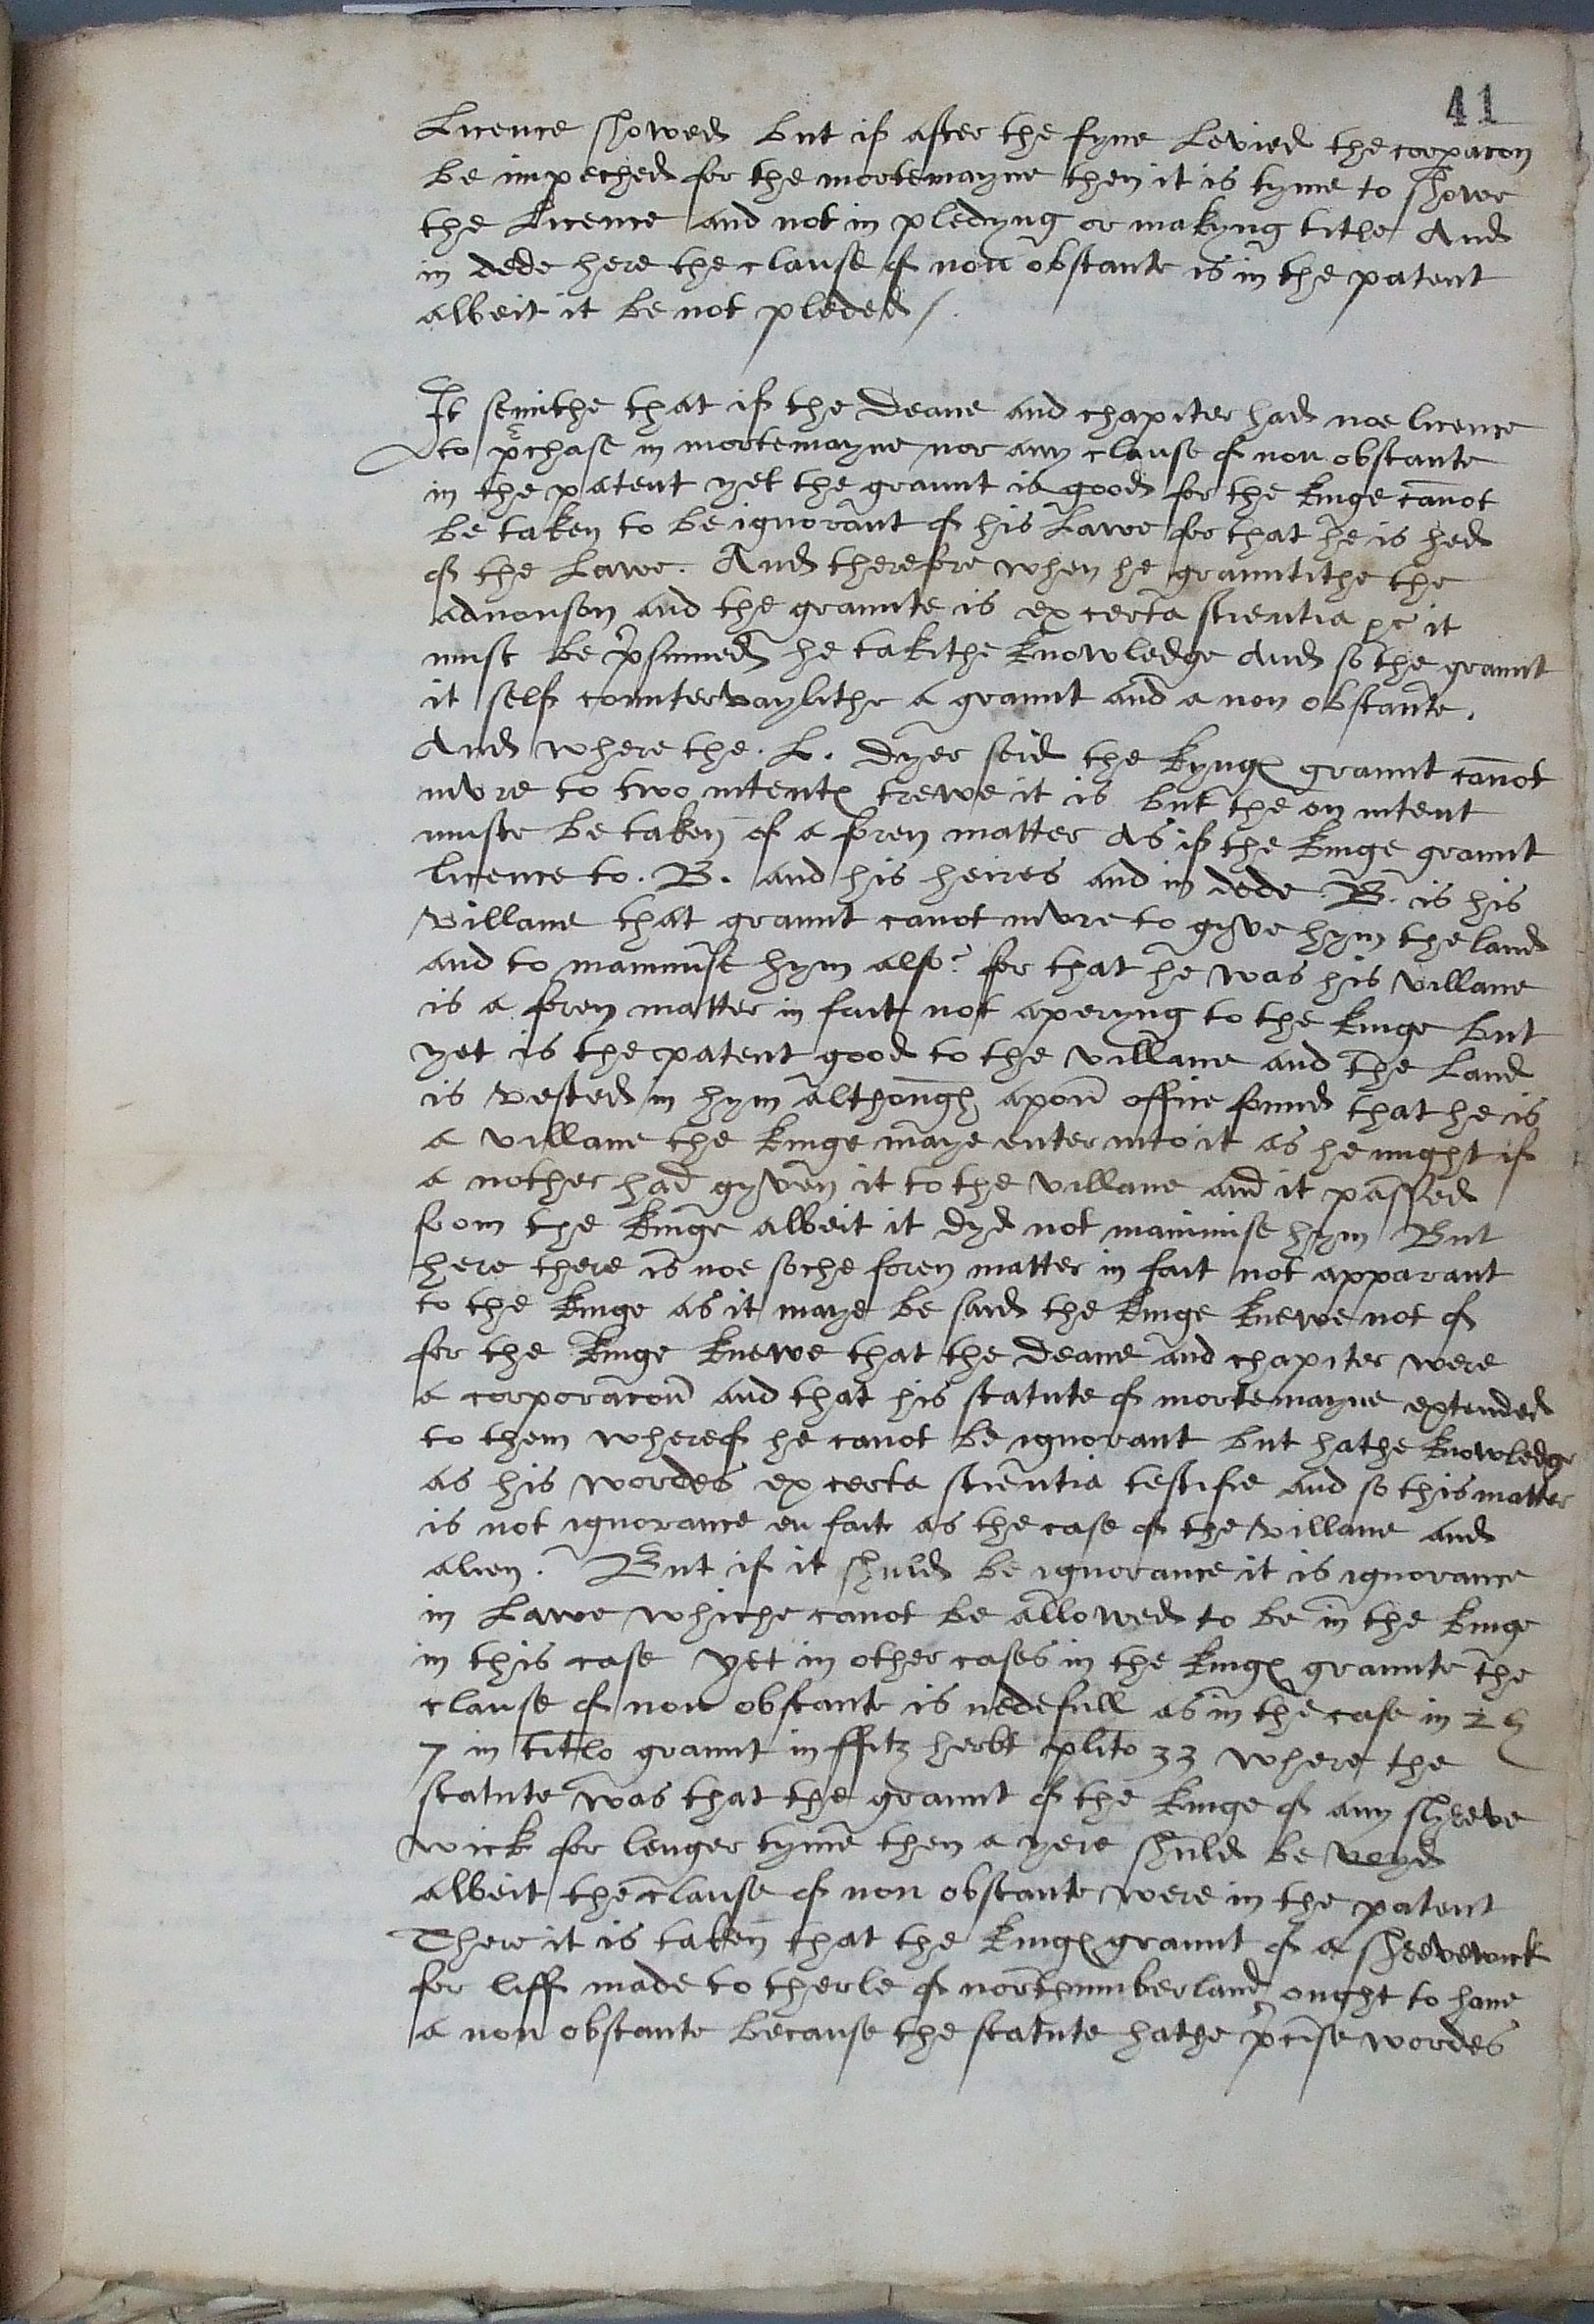 41
Licence showed but if after the fyne levied the corporacon
be impeched for the mortemayne then it is tyme to showe
the licence and not in pledyng or makyng title And
in dede here the clause of non obstante is in the patent
albeit it be not pleded /
It semithe that if the Deane and chapiter had noe licence
to p̱chase in mortemayne nor any clause of non obstante
in the patent yet the graunt is good for the kinge cānot
be taken to be ignorant of his Lawe for that he is hed
of the Lawe. And therefore when he grauntithe the
advouson and the graunte is ex certa scientia &c it
must be p̱sumed he takithe knowledge And so the graunt
it self countervaylithe a graunt and a non obstante.
And where the . L . Dyer seid the kynges graunt cānot
inure to two intentes trewe it is but the on intent
muste be taken of a foren matter As if the kinge graunt
licence to . B . and his heires and in dede . B . is his
villane that graunt canot inure to gyve hym the land
and to manumise hym also? for that he was his villane
is a foren matter in fait not aperyng to the kinge but
yet is the patent good to the villane and the Land
is vested in hym although apon office found that he is
a villane the kinge maye enter into it as he myght if
a nother had gyven it to the villane and it passed
from the kinge albeit it dyd not manumise hym But
here there is noe soche foren matter in fait not apparant
to the kinge as it maye be said the kinge knewe not of
for the kinge knewe that the Deane and chapiter were
a corporacon and that his statute of mortemayne extended
to them wherof he canot be ignorant but hathe knowledge
as his wordes ex certa scientia testifie and so this matter
is not ignorance en fait as the case of the villane and
alien . But if it shuld be ignorance it is ignorance
in Lawe whiche canot be allowed to be in the kinge
in this case yet in other cases in the kinges graunte the
clause of non obstante is nedefull as in the case in 2 h
7 in title graunt in ffitz herbt plito 33 where the
statute was that the graunt of the kinge of any shreve
wick for lenger tyme then a yere shuld be voyd
albeit the clause of non obstante were in the patent
There it is taken that the kinges graunt of a shrevewick
for liff made to therle of northumberland ought to have
a non obstante because the statute hathe p̱cise wordes